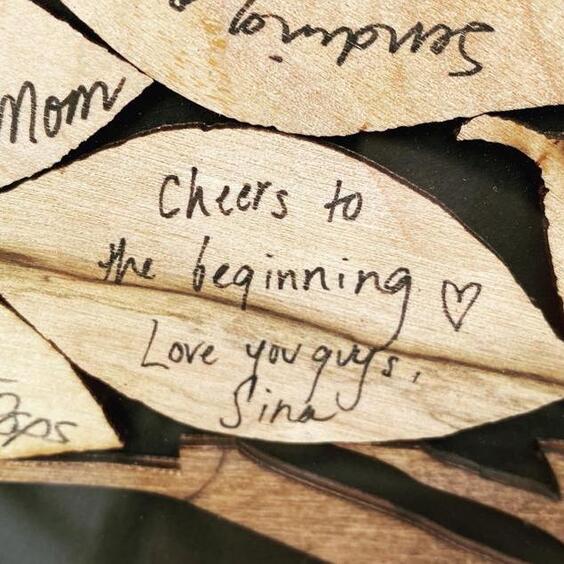 Sending
Mom
Cheers to
the beginning ♡
Love you guys,
Sina